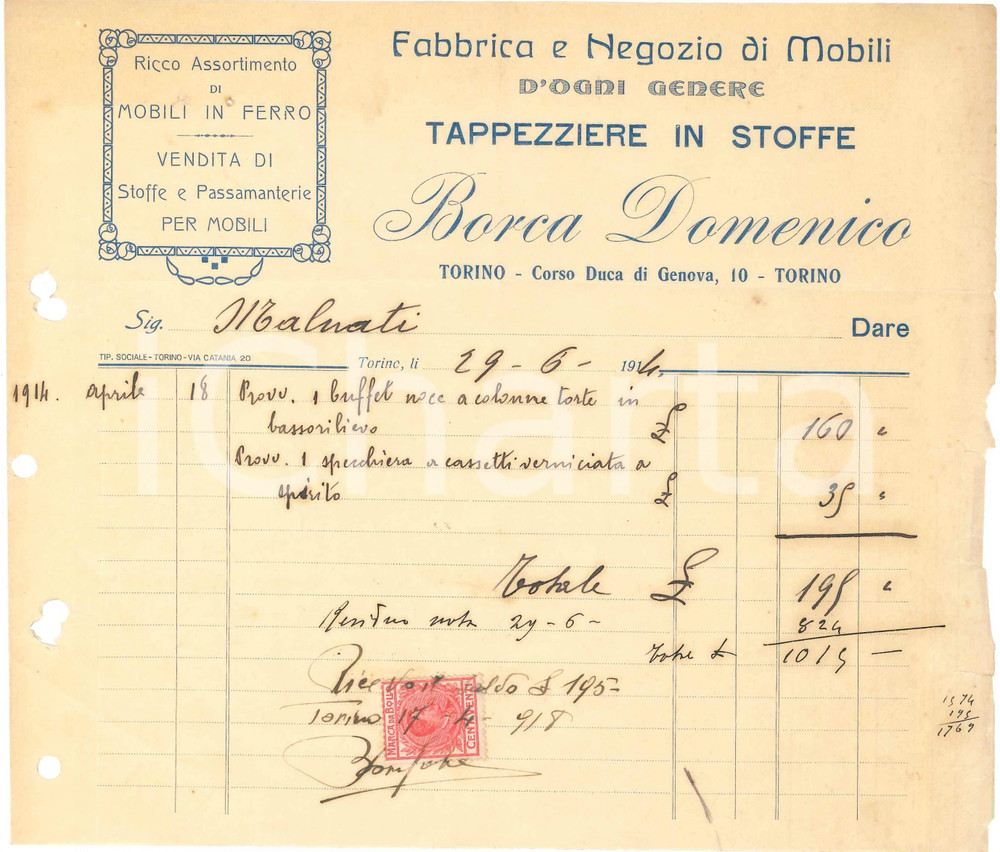 Ricco Assortimento
DI
MOBILI IN FERRO
VENDITA DI
Stoffe e Passamanterie
PER MOBILI
Fabbrica e Negozio di Mobili
D'OGNI GENERE
TAPPEZZIERE IN STOFFE
Borca Domenico
TORINO - Corso Duca di Genova, 10 - TORINO
Sig. Malnati Dare
TIP. SOCIALE - TORINO - VIA CATANIA 20
Torino, li 29 - 6 - 1914.
1914. aprile 18 Provv. 1 buffet noce a colonne torte in
bassorilievo £ 160 "
Provv. 1 specchiera a cassetti verniciata a
spirito £ 35 "
Totale £ 195 "
Residuo nota 29 - 6 - 824
Totale £ 1019 —
saldo £ 195 -
Torino 17 - 4 - 918
MARCA DA BOLLO
CENTESIMI
1574
195
1769
iCharta